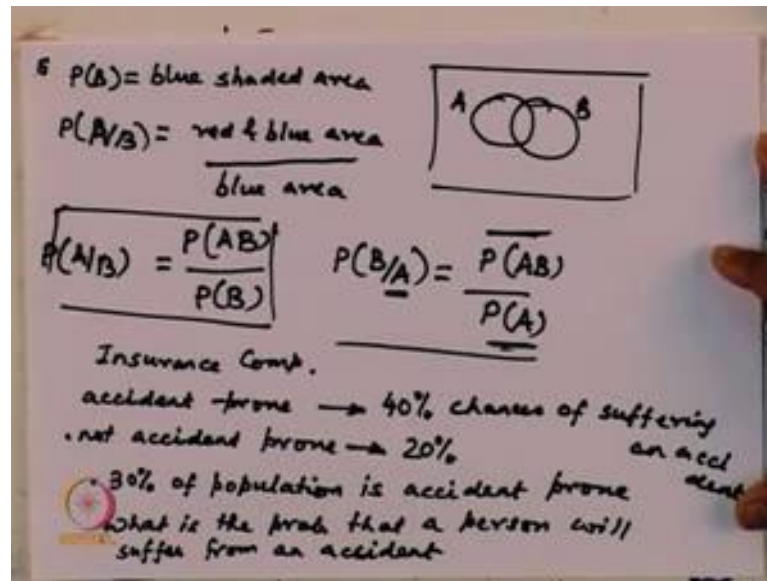 P(B) = blue shaded area
A B
P(A/B) = red & blue area
blue area
P(A/B) = P(AB)
P(B)
P(B/A) = P(AB)
P(A)
Insurance Comp.
accident prone → 40% chances of suffering
an accident
. not accident prone → 20%
. 30% of population is accident prone
What is the prob that a person will
suffer from an accident